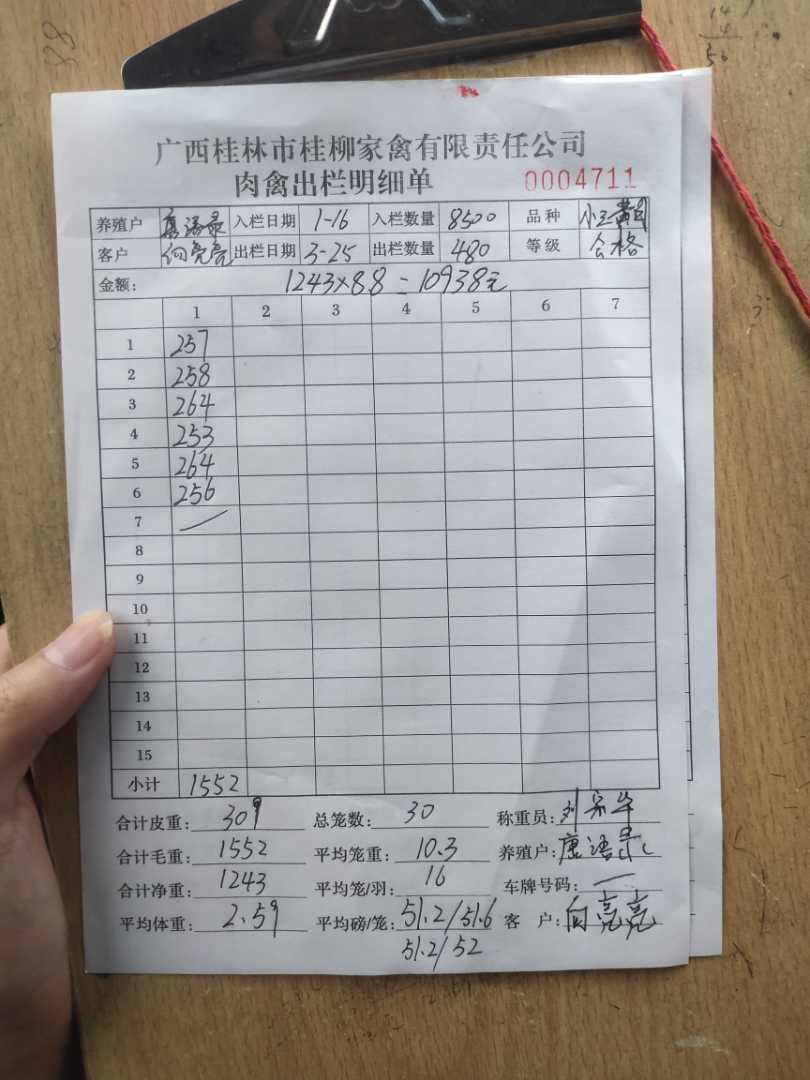 88
14
4
56
广西桂林市桂柳家禽有限责任公司
肉禽出栏明细单 0004711
养殖户 唐语录 入栏日期 1-16 入栏数量 8500 品种
客户 向亮亮 出栏日期 3-25 出栏数量 480 等级 合格
金额: 1243×8.8=10938元
1 2 3 4 5 6 7
1 257
2 258
3 264
4 253
5 264
6 256
7
8
9
10
11
12
13
14
15
小计 1552
合计皮重: 309 总笼数: 30 称重员:
合计毛重: 1552 平均笼重: 10.3 养殖户: 唐语录
合计净重: 1243 平均笼/羽: 16 车牌号码: —
平均体重: 2.59 平均磅/笼: 51.2/51.6 客 户: 向亮亮
51.2/52